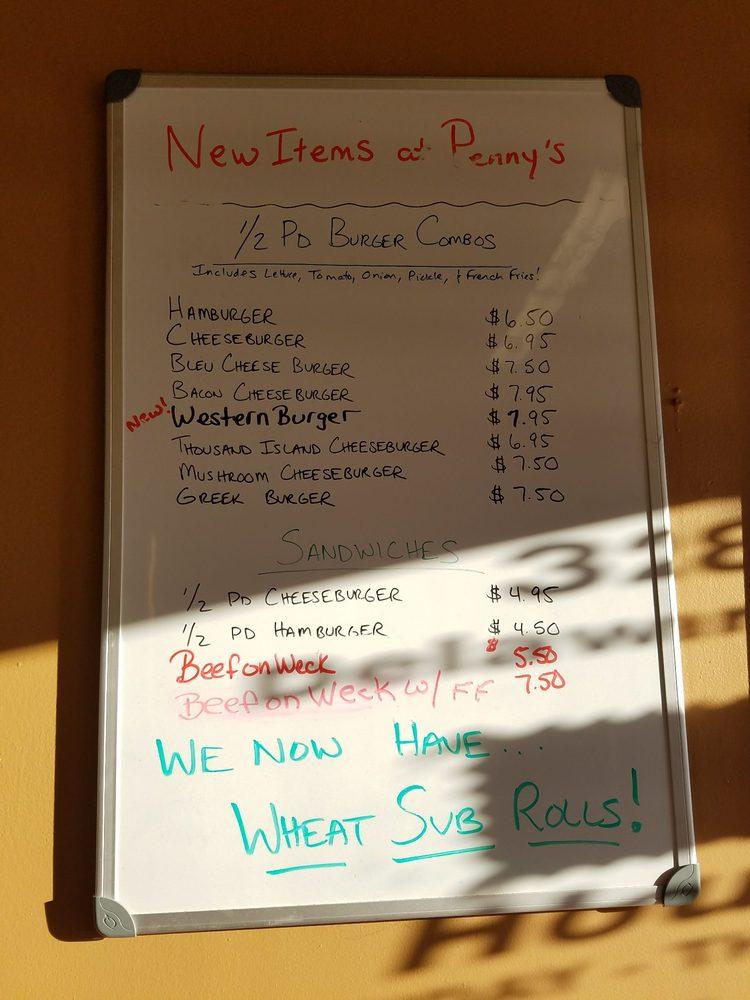 New Items at Penny's
1/2 PD BURGER COMBOS
Includes Lettuce, Tomato, Onion, Pickle, & French Fries!
HAMBURGER $6.50
CHEESEBURGER $6.95
BLEU CHEESE BURGER $7.50
BACON CHEESEBURGER $7.95
New! Western Burger $7.95
THOUSAND ISLAND CHEESEBURGER $6.95
MUSHROOM CHEESEBURGER $7.50
GREEK BURGER $7.50
SANDWICHES
1/2 PD CHEESEBURGER $4.95
1/2 PD HAMBURGER $4.50
Beef on Weck $5.50
Beef on Weck w/ FF 7.50
WE NOW HAVE...
WHEAT SUB ROLLS!